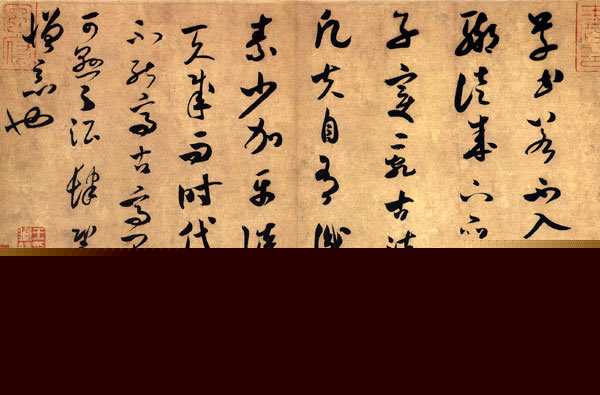 草書若不入
輒徒成下品
子變亂古法
凡夫自有識
素少加平淡
天成而時代
不能高古高
可懸之酒肆
憎惡也